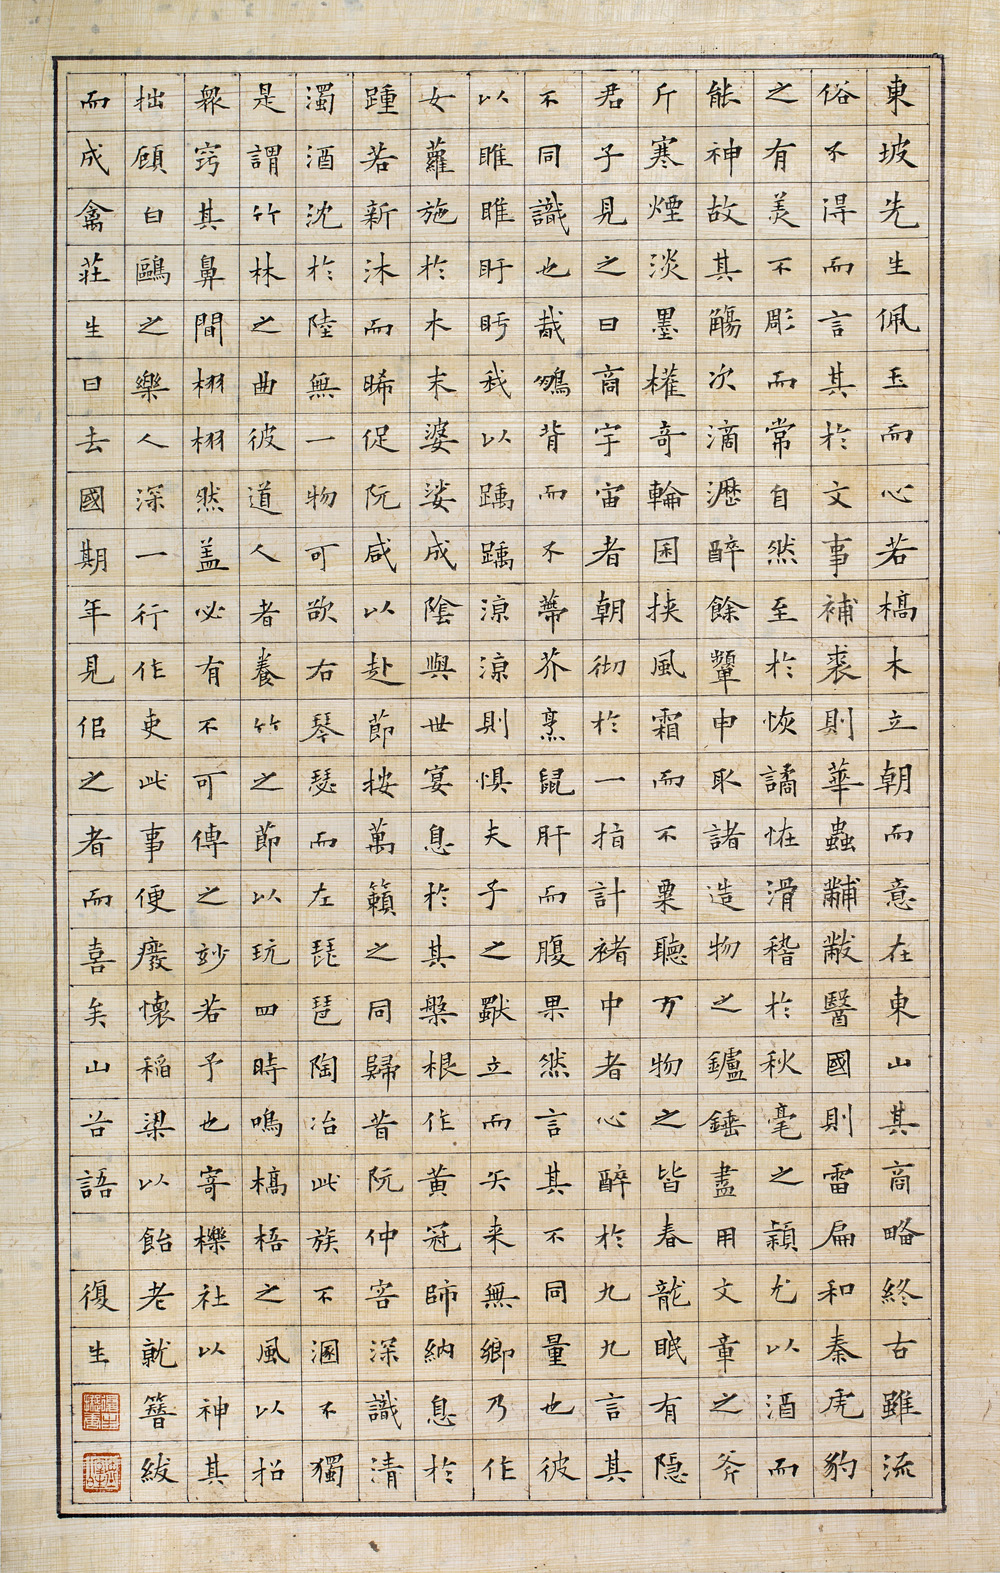 東坡先生佩玉而心若槁木立朝而意在東山其商略終古雖流
俗不得而言其於文事補衮則華蟲黼黻醫國則雷扁和秦虎豹
之有美不彫而常自然至於恢譎恠滑稽於秋毫之穎尤以酒而
能神故其觴次滴瀝醉餘顰申取諸造物之鑪錘盡用文章之斧
斤寒煙淡墨權奇輪囷挾風霜而不栗聽万物之皆春龍眠有隱
君子見之曰商宇宙者朝徹於一指計褚中者心醉於九九言其
不同識也哉鵬背而不蔕芥烹鼠肝而腹果然言其不同量也彼
以睢睢盱盱我以踽踽凉凉則惧夫子之獸立而矢来無鄉乃作
女蘿施於木末婆娑成陰與世宴息於其槃根作黄冠師納息於
踵若新沐而晞促阮咸以赴節按萬籟之同歸昔阮仲容深識清
濁酒沈於陸無一物可欲右琴瑟而左琵琶陶冶此族不溷不獨
是謂竹林之曲彼道人者養竹之節以玩四時鳴槁梧之風以招
衆竅其鼻間栩栩然盖必有不可傳之妙若予也寄櫟社以神其
拙顧白鷗之樂人深一行作吏此事便廢懷稻梁以飴老就簪紱
而成禽莊生曰去國期年見佀之者而喜矣山谷語 復生